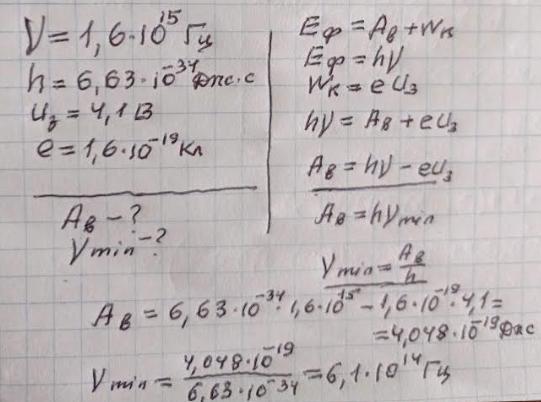 ν = 1,6·10¹⁵ Гц
h = 6,63·10⁻³⁴ Дж·с
U₃ = 4,1 В
e = 1,6·10⁻¹⁹ Кл
Aв - ?
νmin - ?
Eф = Aв + Wк
Eф = hν
Wк = eU₃
hν = Aв + eU₃
Aв = hν - eU₃
Aв = hνmin
νmin = Aв/h
Aв = 6,63·10⁻³⁴·1,6·10¹⁵ - 1,6·10⁻¹⁹·4,1 =
= 4,048·10⁻¹⁹ Дж
νmin = 4,048·10⁻¹⁹/6,63·10⁻³⁴ = 6,1·10¹⁴ Гц